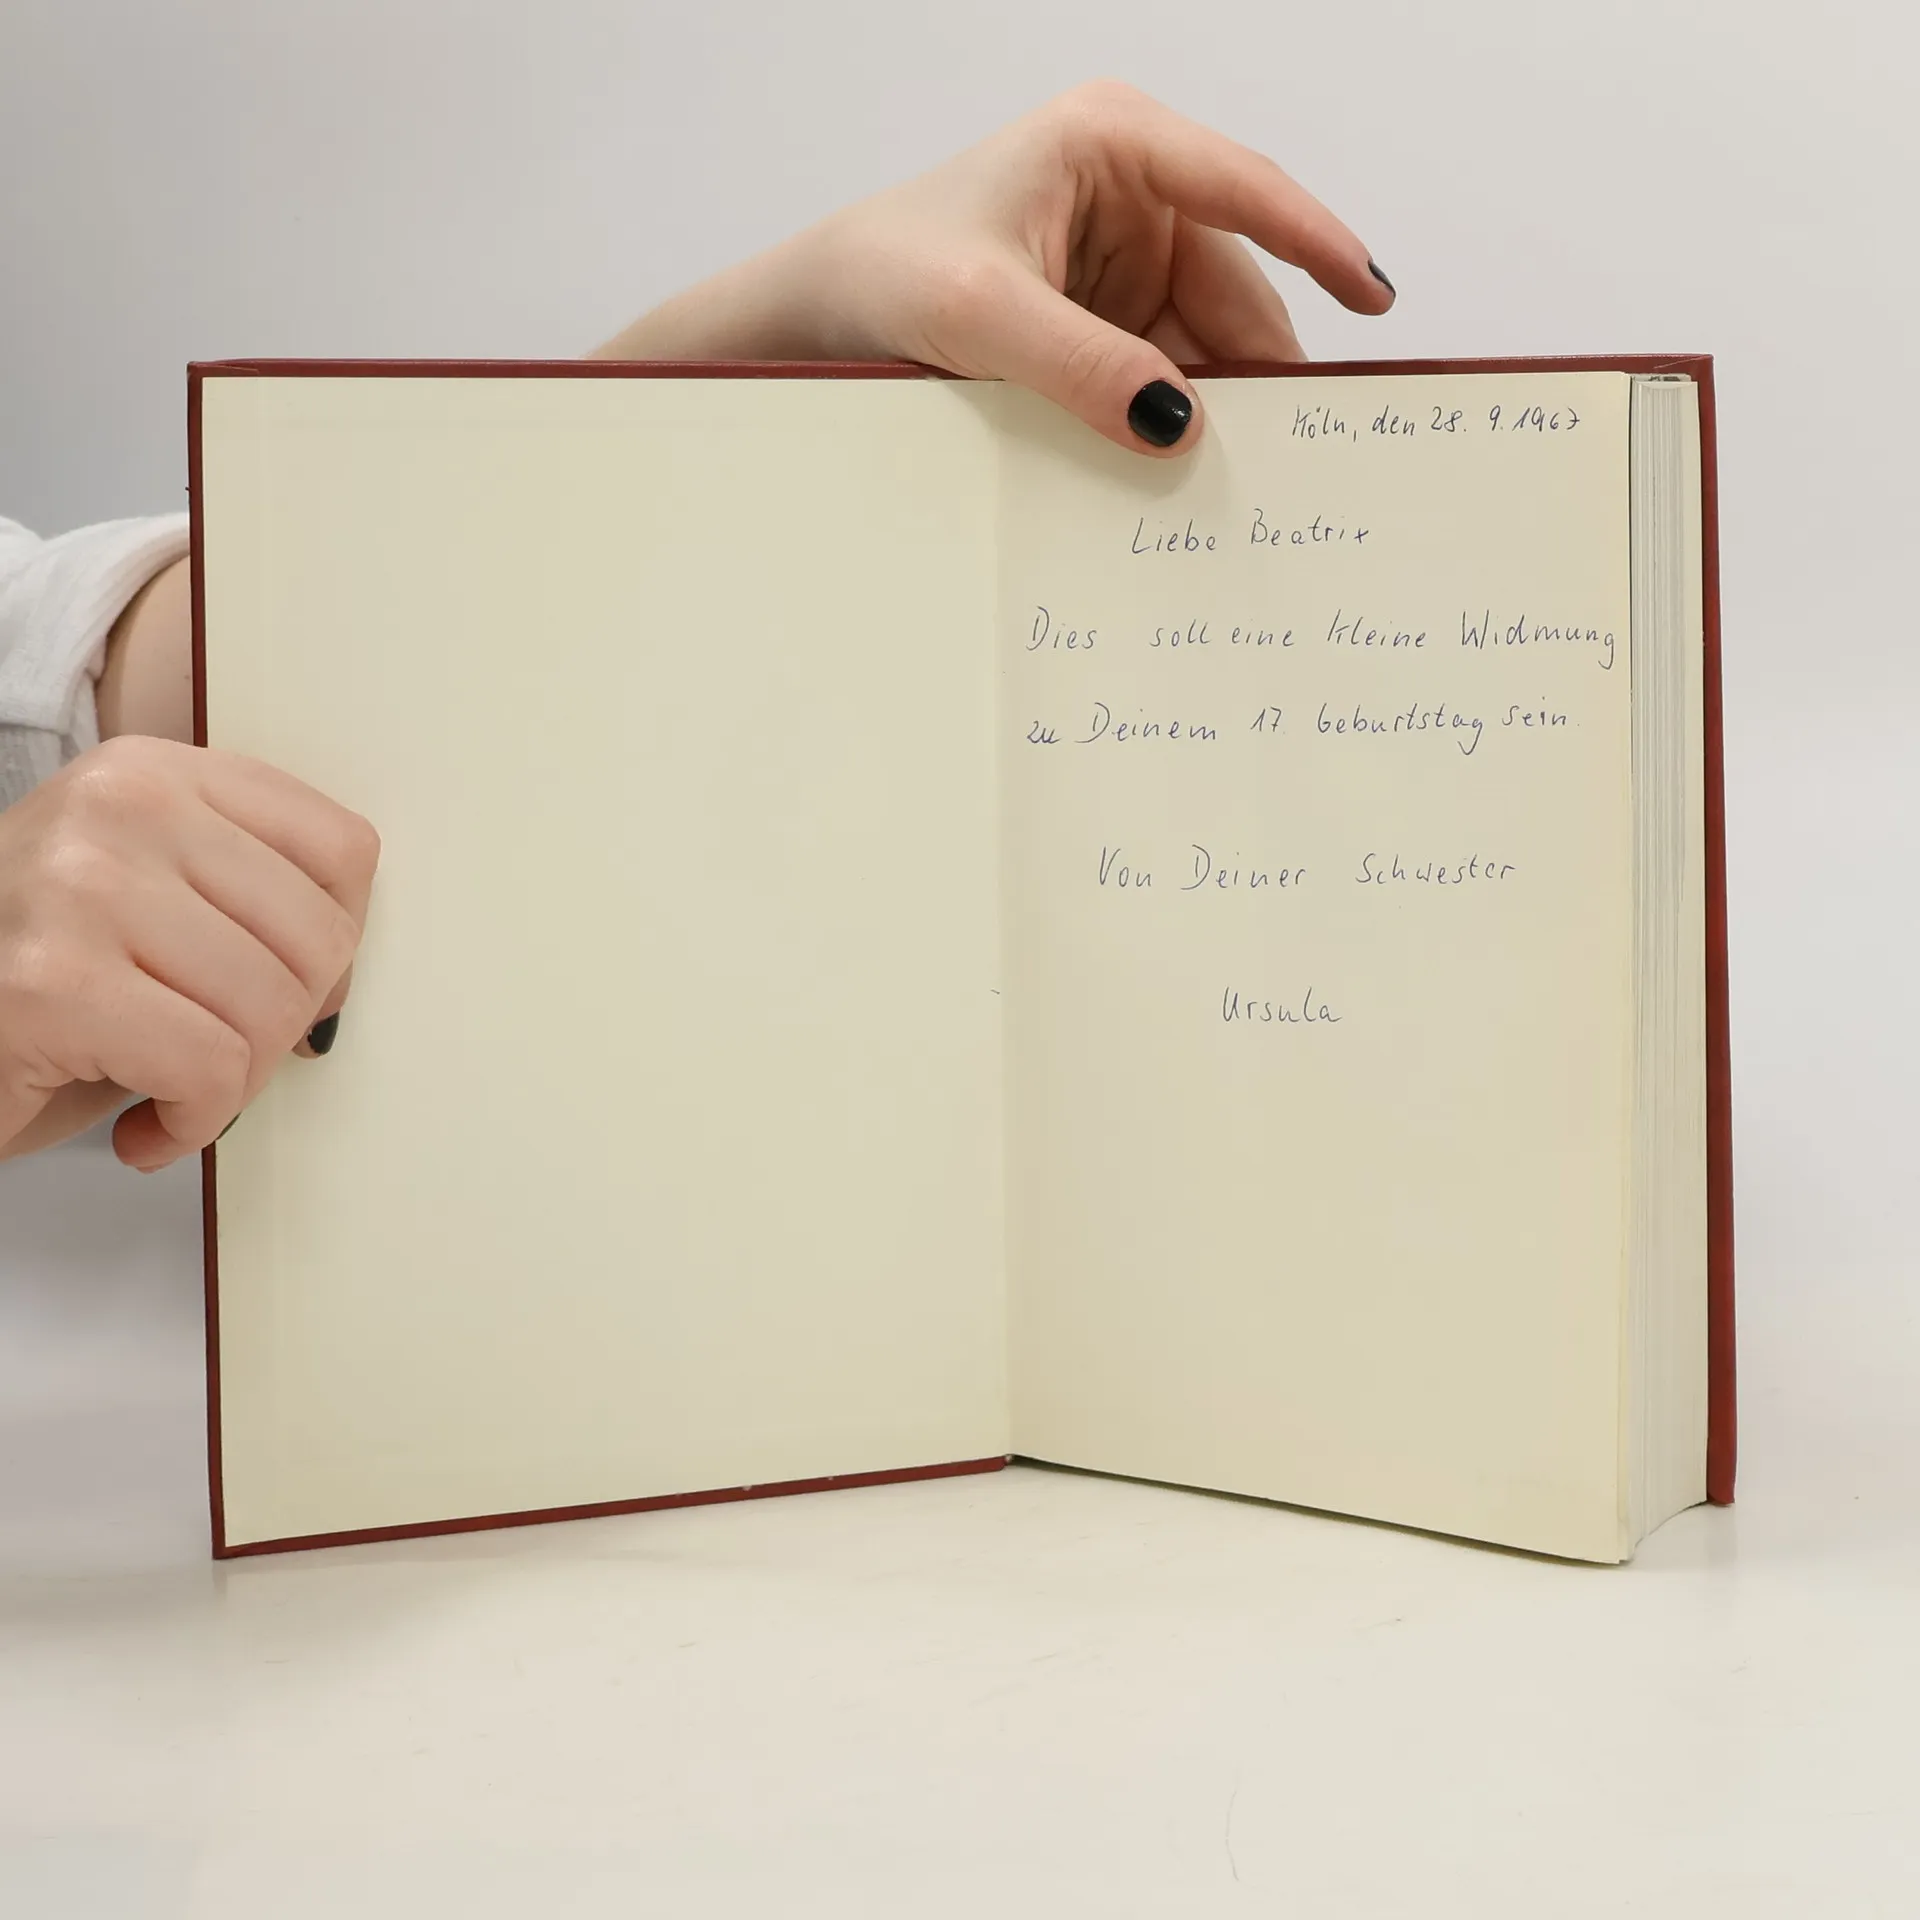 Köln, den 28. 9. 1967
Liebe Beatrix
Dies soll eine kleine Widmung
zu Deinem 17. Geburtstag sein.
Von Deiner Schwester
Ursula